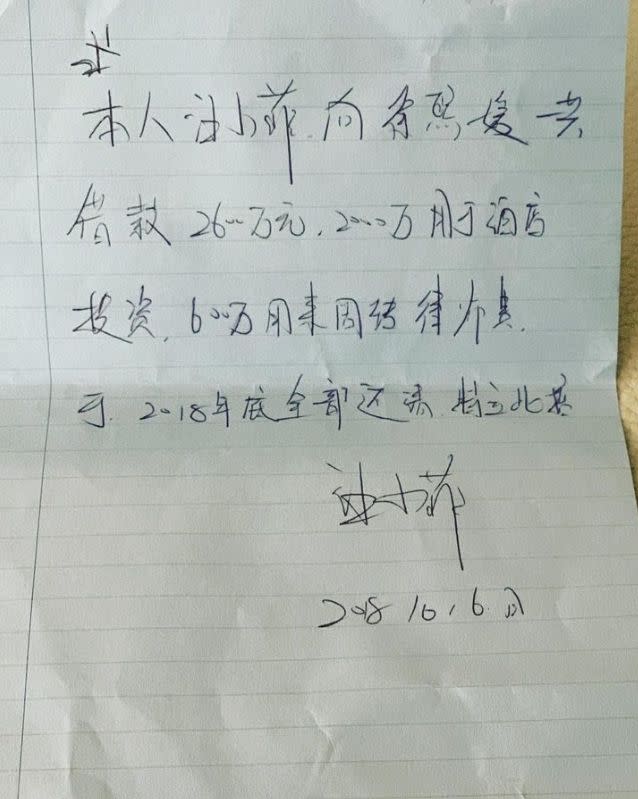 本人汪小菲向徐熙媛共
借款2600万元,2000万用于酒店
投资,600万用来周转律师费,
于2018年底全部还清,特立此
汪小菲
2018 10,6,日